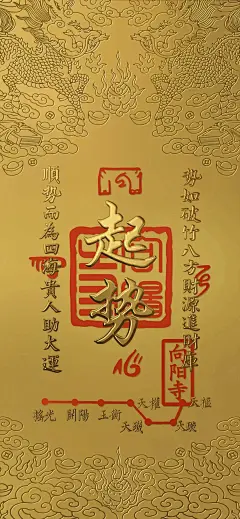 勢如破竹八方財源進財庫
起势
順勢而為四海貴人助大運
向阳寺
搖光 開陽 玉衡 天權 天璣 天璇 天樞